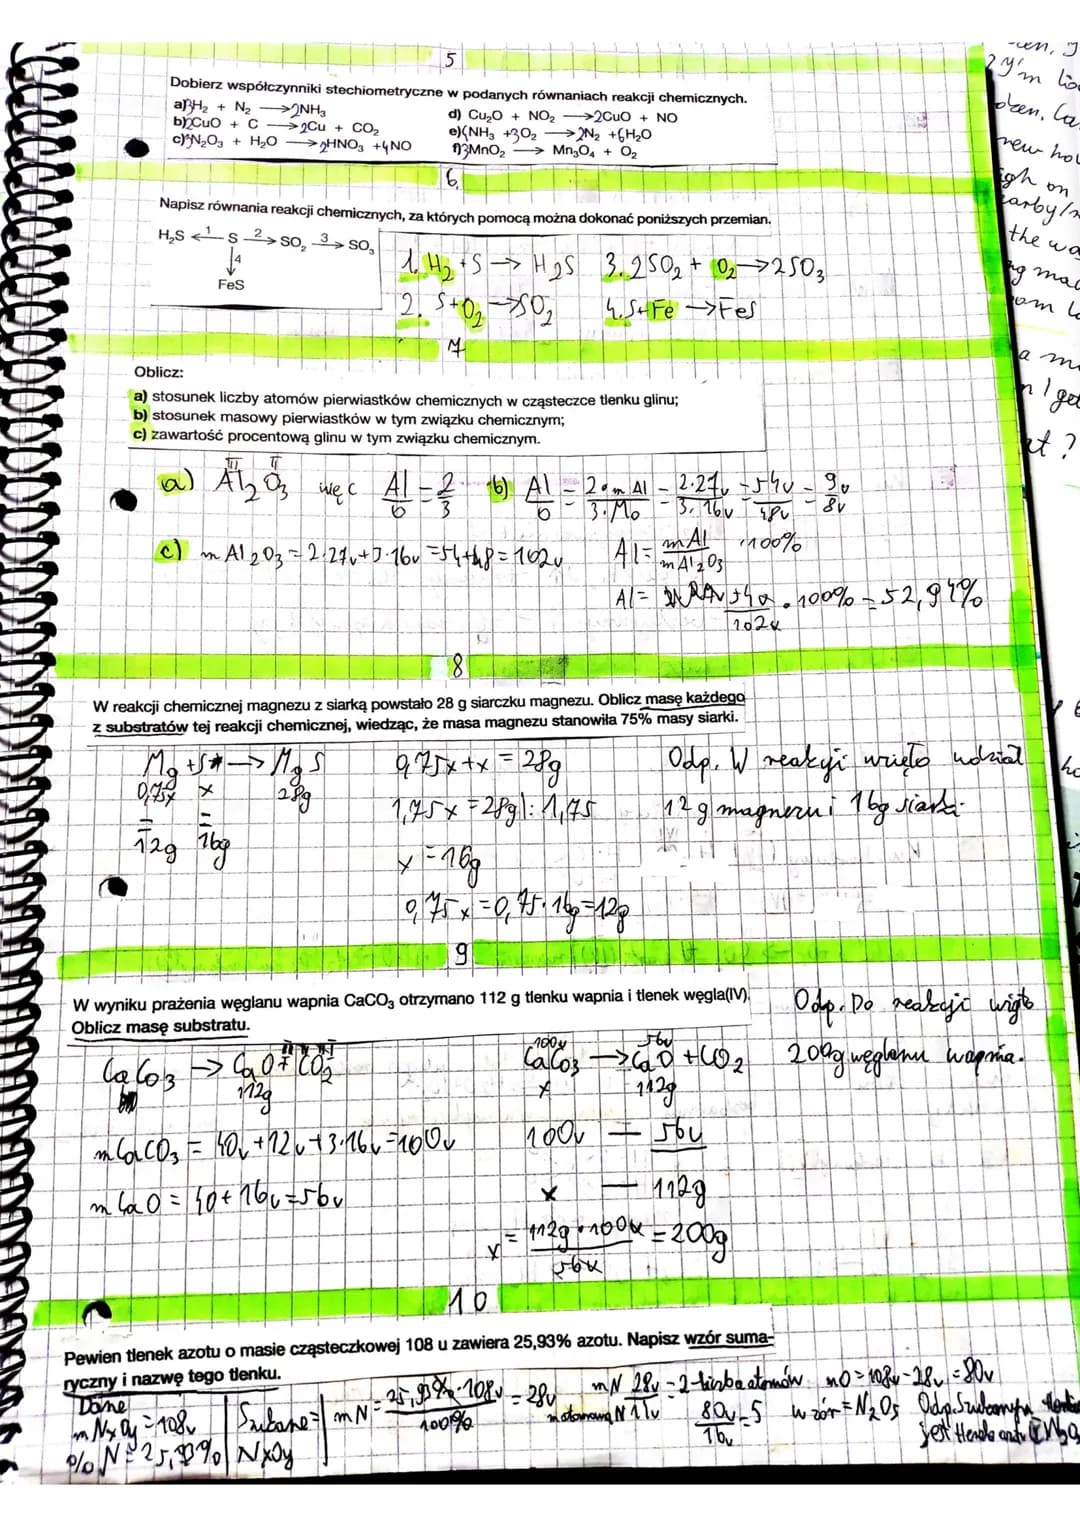 5
Dobierz współczynniki stechiometryczne w podanych równaniach reakcji chemicznych.
a) 3H₂ + N₂ → 2NH₃
b) 2CuO + C → 2Cu + CO₂
c) 3N₂O₃ + H₂O → 2HNO₃ + 4NO
d) Cu₂O + NO₂ → 2CuO + NO
e) 4NH₃ + 3O₂ → 2N₂ + 6H₂O
f) 3MnO₂ → Mn₃O₄ + O₂
6.
Napisz równania reakcji chemicznych, za których pomocą można dokonać poniższych przemian.
H₂S ←1 S 2→ SO₂ 3→ SO₃
4
FeS
1. H₂ + S → H₂S 3. 2SO₂ + O₂ → 2SO₃
2. S + O₂ → SO₂ 4. S + Fe → FeS
7
Oblicz:
a) stosunek liczby atomów pierwiastków chemicznych w cząsteczce tlenku glinu;
b) stosunek masowy pierwiastków w tym związku chemicznym;
c) zawartość procentową glinu w tym związku chemicznym.
a) Al₂O₃ więc Al/O = 2/3 b) Al/O = 2·mAl/3·MO = 2·27u/3·16u = 54u/48u = 9u/8u
III II
c) mAl₂O₃ = 2·27u + 3·16u = 54+48 = 102u Al = mAl/mAl₂O₃ · 100%
Al = 54u/102u · 100% = 52,94%
8
W reakcji chemicznej magnezu z siarką powstało 28 g siarczku magnezu. Oblicz masę każdego
z substratów tej reakcji chemicznej, wiedząc, że masa magnezu stanowiła 75% masy siarki.
Mg + S → MgS
0,75x x 28g
= =
12g 16g
0,75x + x = 28g
1,75x = 28g |: 1,75
x = 16g
0,75x = 0,75·16g = 12g
Odp. W reakcji wzięło udział
12g magnezu i 16g siarki.
9
W wyniku prażenia węglanu wapnia CaCO₃ otrzymano 112 g tlenku wapnia i tlenek węgla(IV).
Oblicz masę substratu.
CaCO₃ → CaO + CO₂
112g
mCaCO₃ = 40u + 12u + 3·16u = 100u
mCaO = 40 + 16u = 56u
100u 56u
CaCO₃ → CaO + CO₂
x 112g
100u — 56u
x — 112g
x = 112g·100u/56u = 200g
Odp. Do reakcji wzięto
200g węglanu wapnia.
10
Pewien tlenek azotu o masie cząsteczkowej 108 u zawiera 25,93% azotu. Napisz wzór suma-
ryczny i nazwę tego tlenku.
Dane
mNxOy = 108u
%N = 25,93%
Szukane =
NxOy
mN = 25,93%·108u/100% = 28u
mN 28u = 2 - liczba atomów mO = 108u - 28u = 80u
80u/16u = 5 wzór = N₂O₅